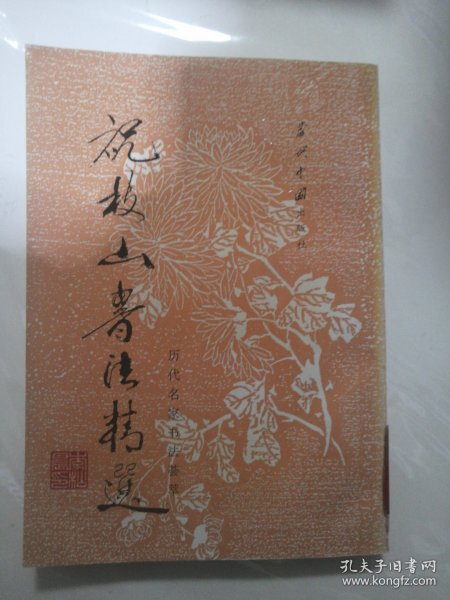 祝枝山書法精選
历代名家书法荟萃
当代中国出版社
孔夫子旧书网
www.kongfz.com